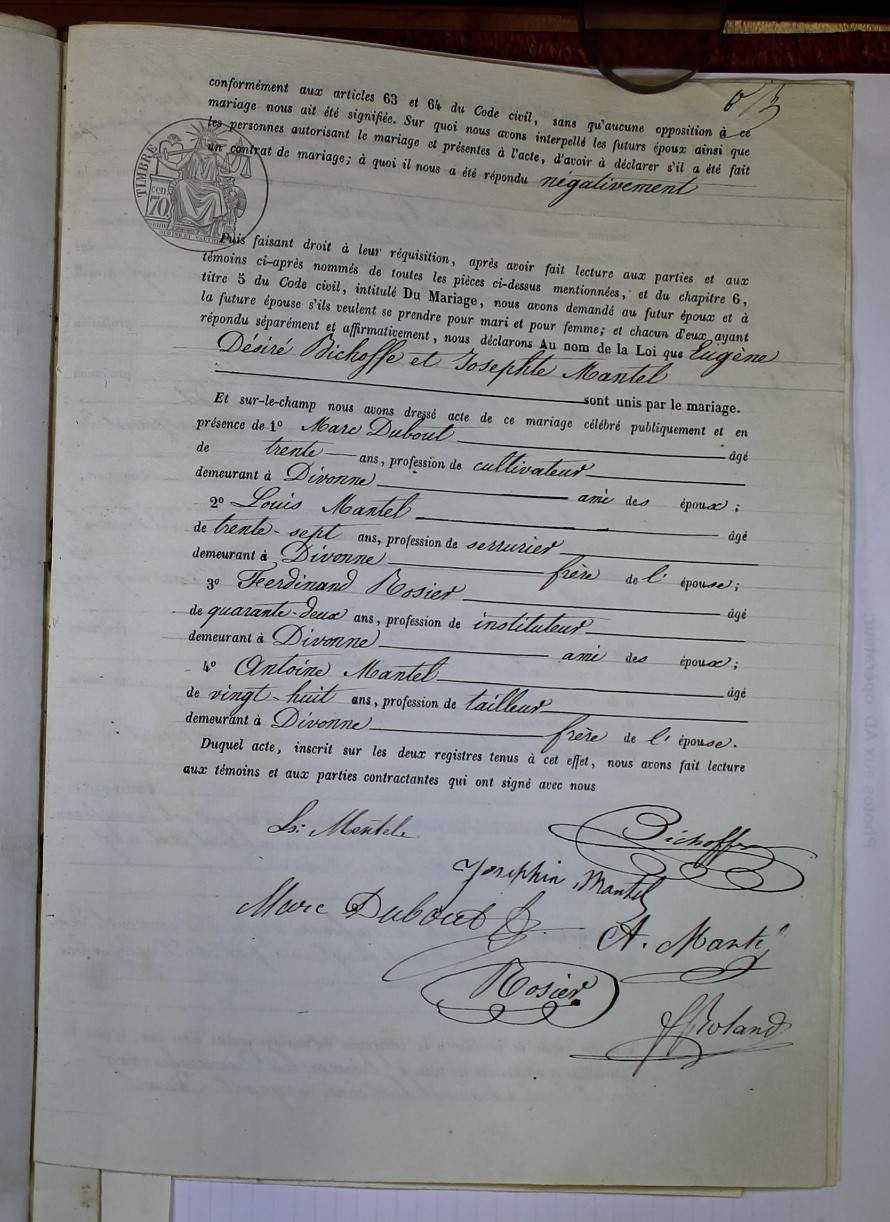 conformément aux articles 63 et 64 du Code civil, sans qu'aucune opposition à ce
mariage nous ait été signifiée. Sur quoi nous avons interpellé les futurs époux ainsi que
les personnes autorisant le mariage et présentes à l'acte, d'avoir à déclarer s'il a été fait
un contrat de mariage; à quoi il nous a été répondu négativement
TIMBRE
cen.
70
Puis faisant droit à leur réquisition, après avoir fait lecture aux parties et aux
témoins ci-après nommés de toutes les pièces ci-dessus mentionnées, et du chapitre 6,
titre 5 du Code civil, intitulé Du Mariage, nous avons demandé au futur époux et à
la future épouse s'ils veulent se prendre pour mari et pour femme; et chacun d'eux ayant
répondu séparément et affirmativement, nous déclarons Au nom de la Loi que Eugène
Désiré Bichoffe et Josephte Mantel
sont unis par le mariage.
Et sur-le-champ nous avons dressé acte de ce mariage célébré publiquement et en
présence de 1° Marc Dubout âgé
de trente ans, profession de cultivateur
demeurant à Divonne ami des époux;
2° Louis Mantel âgé
de trente-sept ans, profession de serrurier
demeurant à Divonne frère de l'épouse;
3° Ferdinand Rosier âgé
de quarante-deux ans, profession de instituteur
demeurant à Divonne ami des époux;
4° Antoine Mantel âgé
de vingt-huit ans, profession de tailleur
demeurant à Divonne frère de l'épouse.
Duquel acte, inscrit sur les deux registres tenus à cet effet, nous avons fait lecture
aux témoins et aux parties contractantes qui ont signé avec nous
Ls: Mentel
Bichoffe
Josephin Mantel
Marc Dubout
A. Mantel
Rosier
Roland